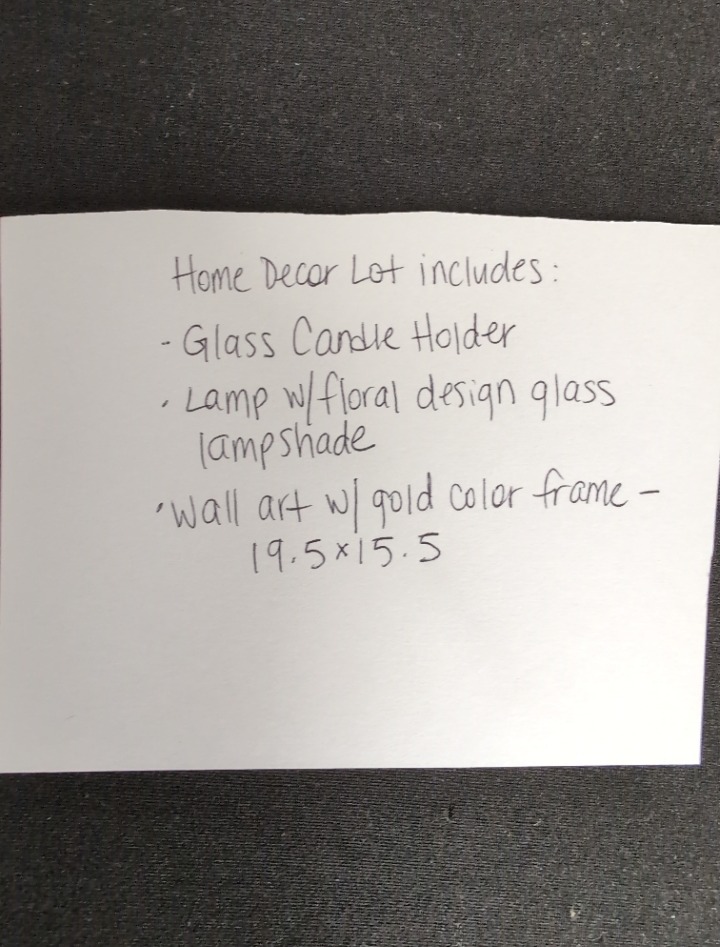 Home Decor Lot includes:
- Glass Candle Holder
· Lamp w/floral design glass
lampshade
· Wall art w/ gold color frame -
19.5x15.5